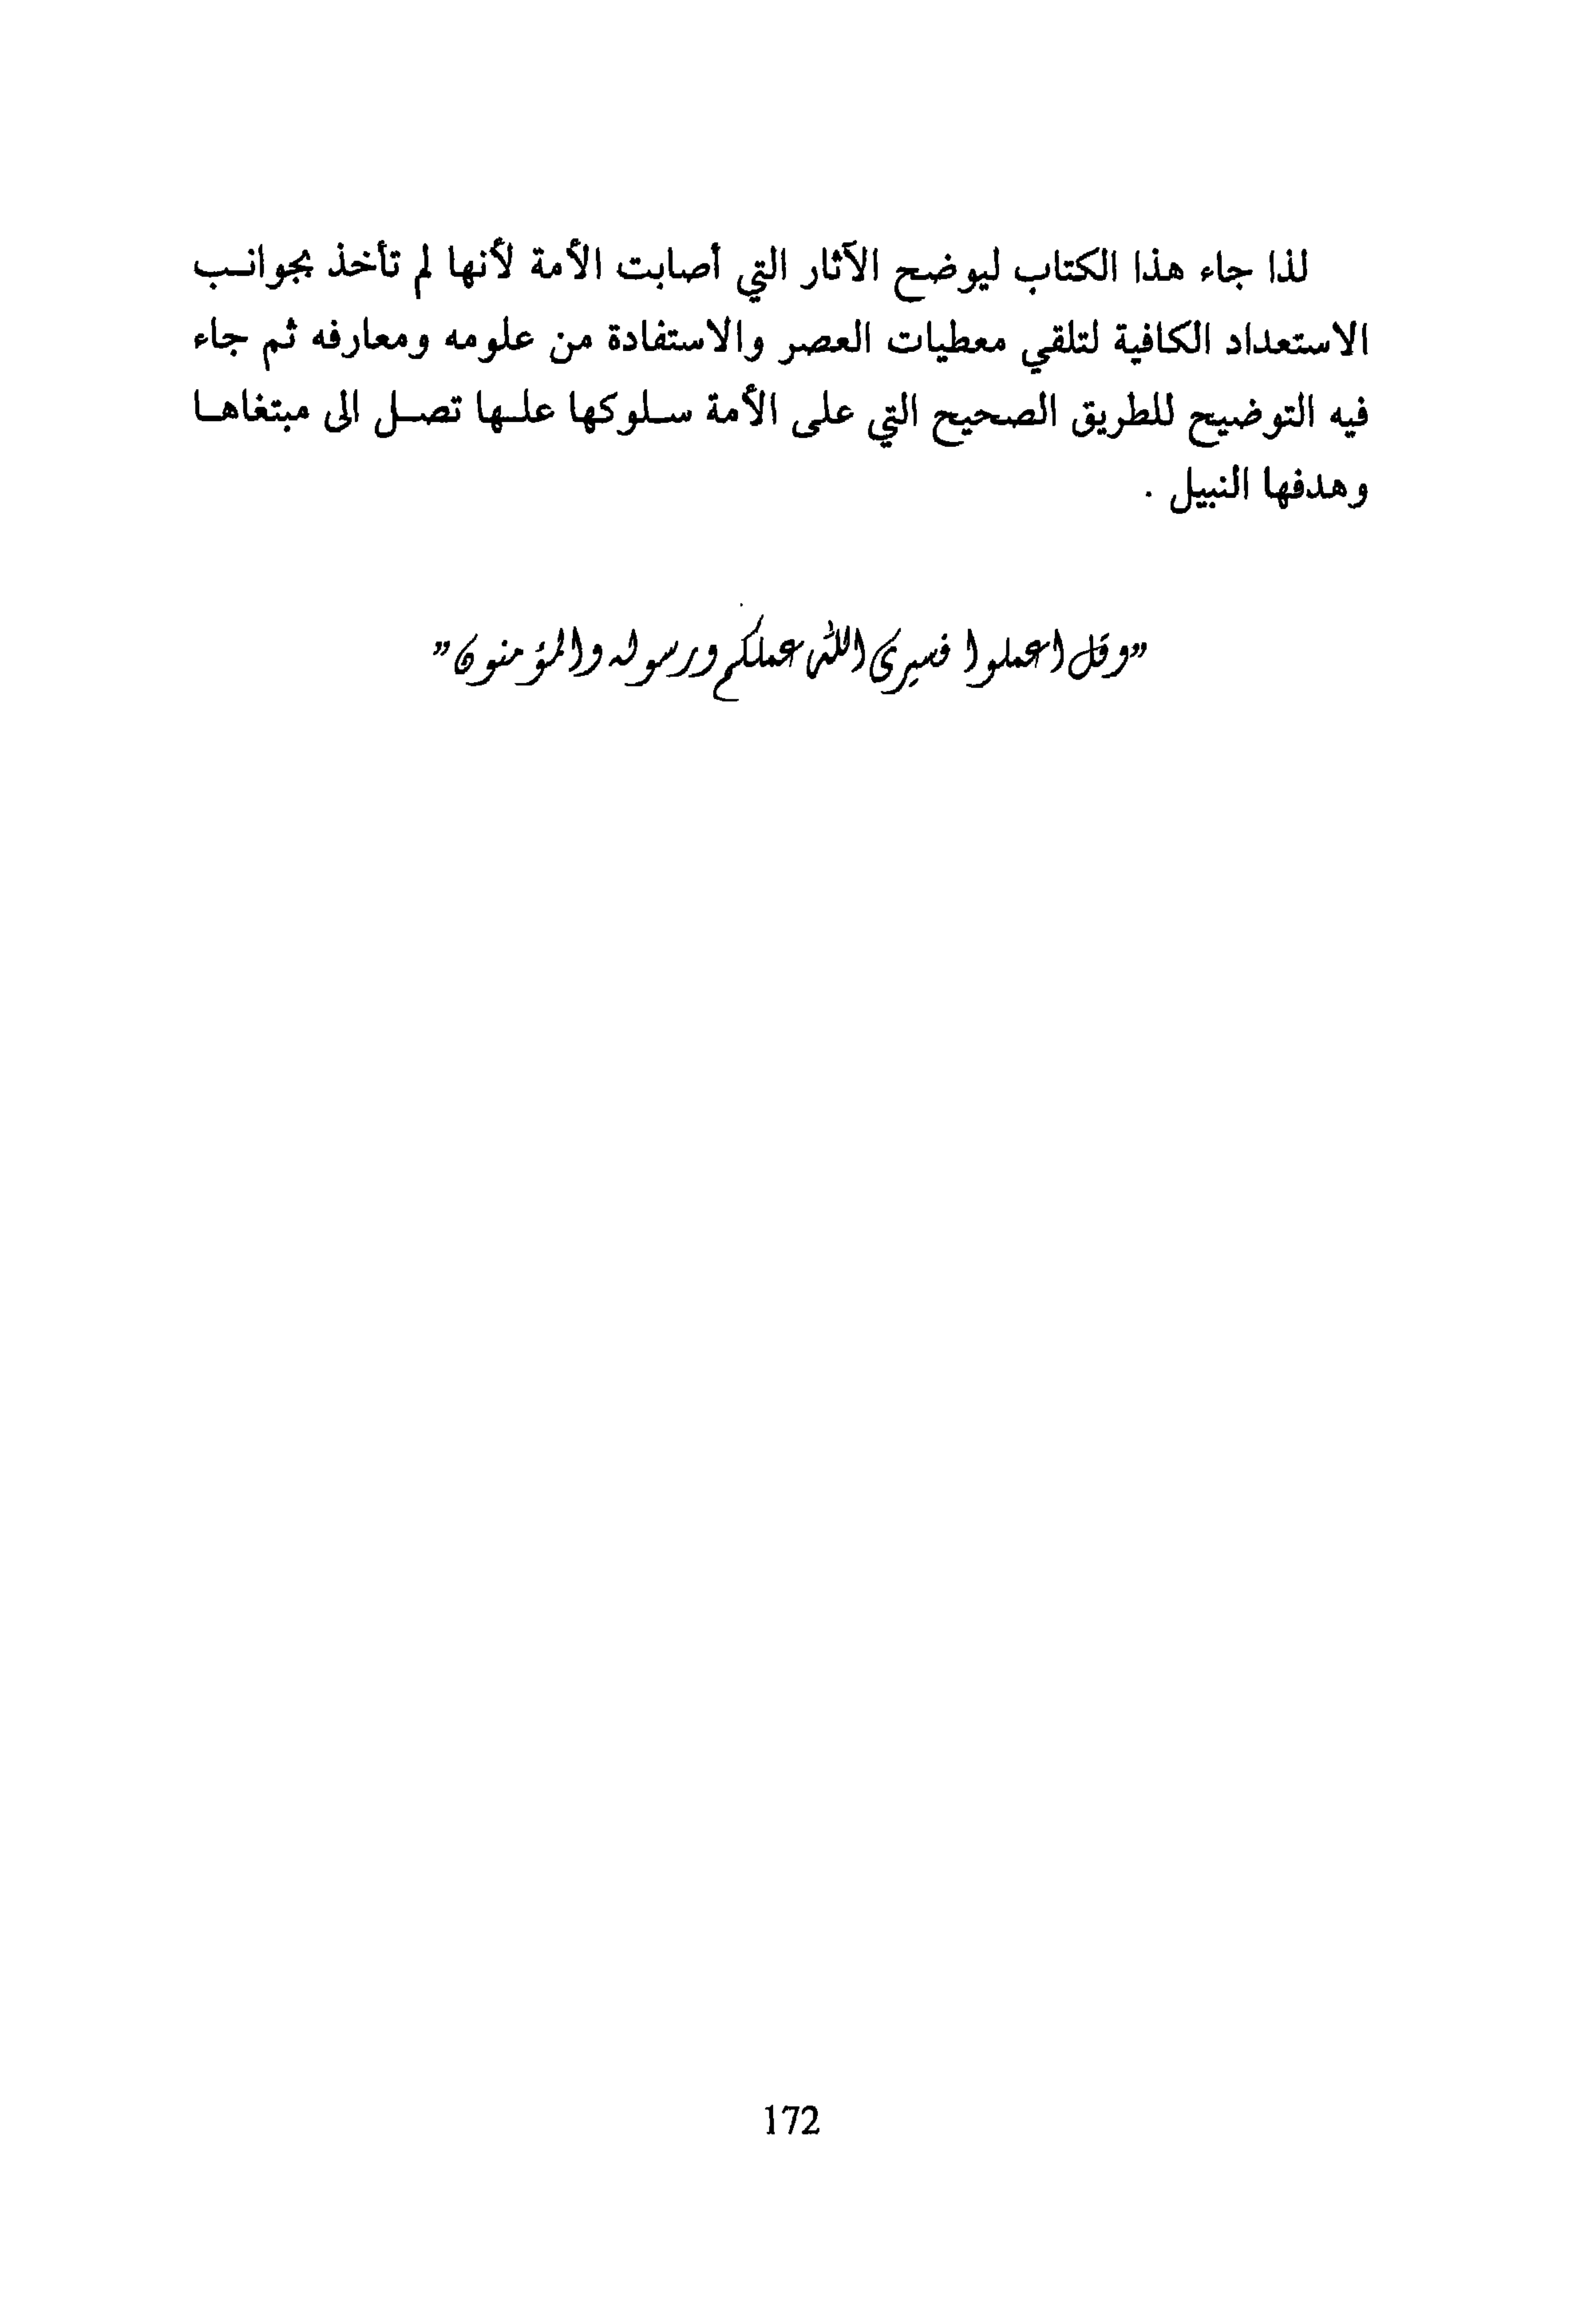 لذا جاء هذا الكتاب ليوضح الآثار التي أصابت الأمة لأنها لم تأخذ بجوانـب
الاستعداد الكافية لتلقي معطيات العصر والاستفادة من علومه ومعارفه ثم جاء
فيه التوضيح للطريق الصحيح التي على الأمة سـلوكها علـها تصـل الى مبتغاهـا
وهدفها النبيل .
”وقل اعملوا فسيرى الله عملكم ورسوله والمؤمنون”
172